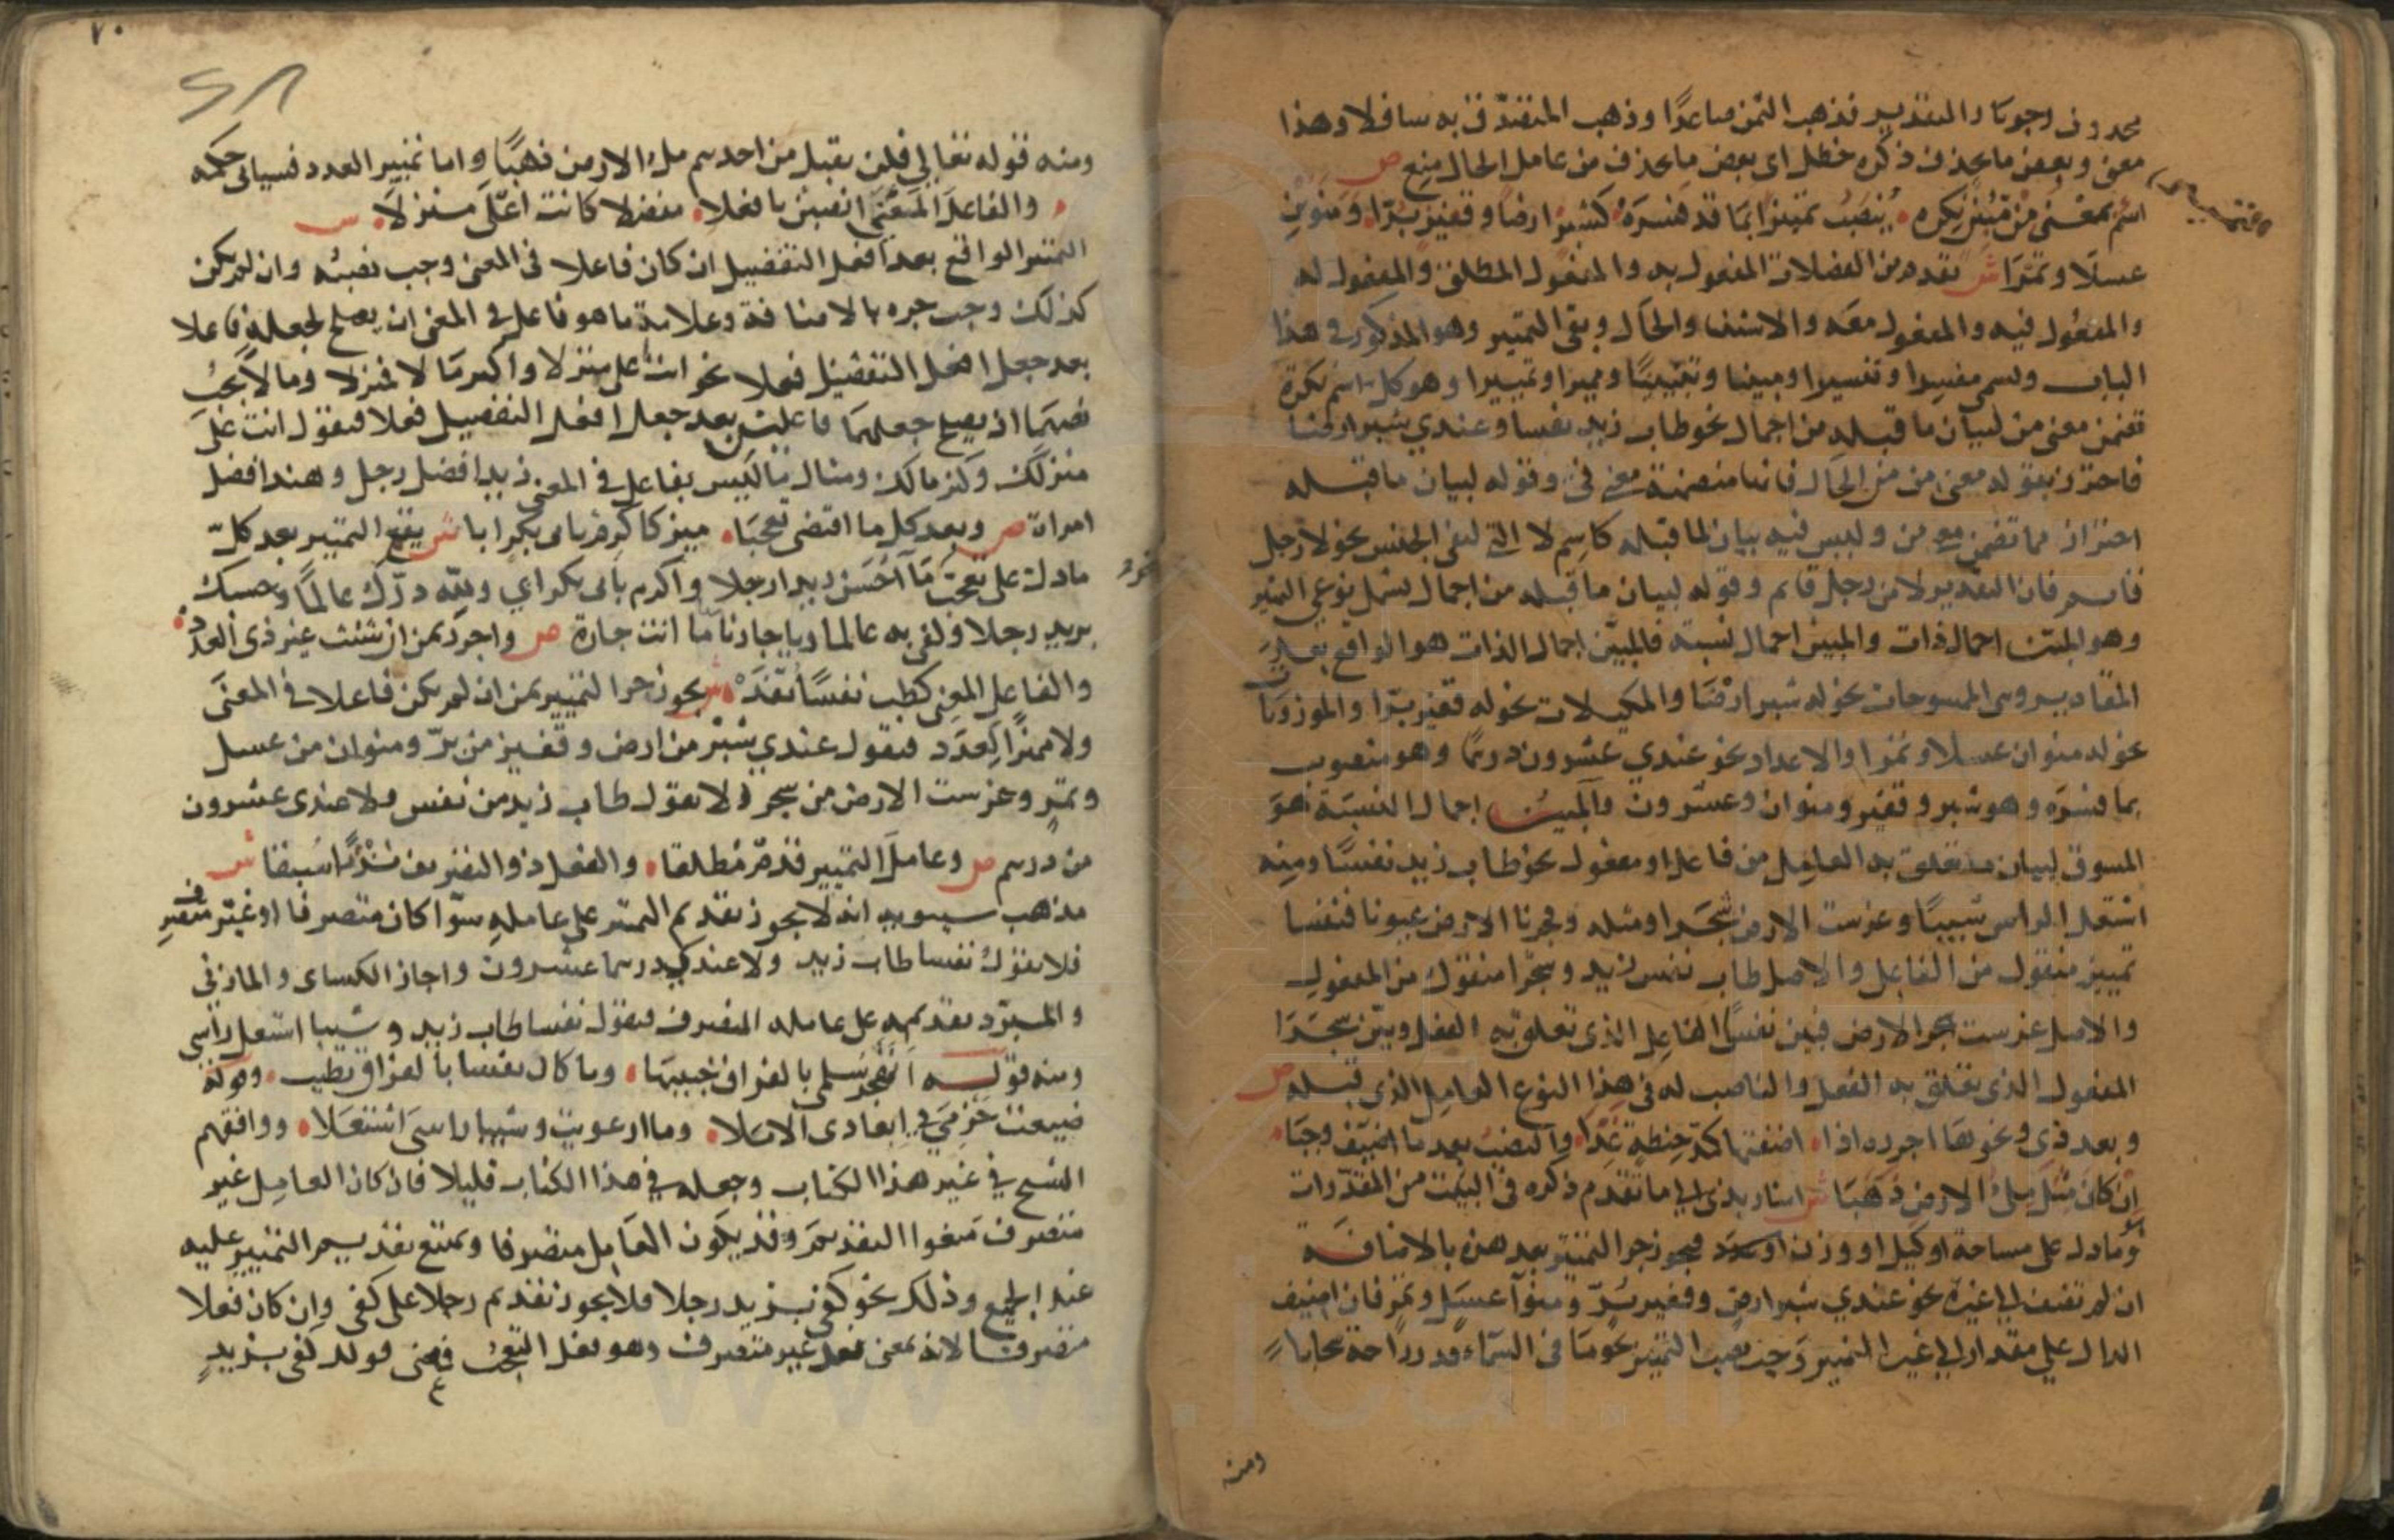 محذوف وجوبا والتقدير فذهب الثمن صاعدا وذهب المتصدق به سافلا وهذا
معنى وبعض ما يحذف ذكره حظل اى بعض ما يحذف من عامل الحال منع ص
اسم بمعنى من مبين نكره ينصب تمييزا بما قد فسره كشبر ارضا وقفيز برا ومنوين
عسلا وتمرا ش تقدم من الفضلات المفعول به والمفعول المطلق والمفعول له
والمفعول فيه والمفعول معه والاستثنا والحال وبقى التمييز وهو المذكور في هذا
الباب ويسمى مفسرا وتفسيرا ومبينا وتبيينا ومميزا وتمييزا وهو كل اسم نكرة
تضمن معنى من لبيان ما قبله من اجمال نحو طاب زيد نفسا وعندي شبر ارضا
فاحترز بقوله معنى من من الحال فانها متضمنة معنى في وقوله لبيان ما قبله
احتراز مما تضمن معنى من وليس فيه بيان لما قبله كاسم لا التي لنفى الجنس نحو لا رجل
قائم فان التقدير لا من رجل قايم وقوله لبيان ما قبله من اجمال يشمل نوعي التمييز
وهو المبين اجمال ذات والمبين اجمال نسبة فالمبين اجمال الذات هو الواقع بعد
المقادير وهى الممسوحات نحو له شبر ارضا والمكيلات نحو له قفيز برا والموزونات
نحو له منوان عسلا وتمرا والاعداد نحو عندي عشرون درهما وهو منصوب
بما فسره وهو شبر وقفيز ومنوان وعشرون والمبين اجمال النسبة هو
المسوق لبيان ما تعلق به العامل من فاعل او مفعول نحو طاب زيد نفسا ومنه
اشتعل الراس شيبا وغرست الارض شجرا ومثله وفجرنا الارض عيونا فنفسا
تمييز منقول من الفاعل والاصل طاب نفس زيد وشجرا منقول من المفعول
والاصل غرست شجر الارض فبين نفسا الفاعل الذى تعلق به الفعل وبين شجرا
المفعول الذى تعلق به الفعل والناصب له في هذا النوع العامل الذى قبله ص
وبعد ذى ونحوها اجرره اذا اضفتها كمد حنطة غذا والنصب بعد ما اضيف وجبا
ان كان مثل ملء الارض ذهبا ش اشار بذى الى ما تقدم ذكره في البيت من المقدرات
وما دل على مساحة او كيل او وزن فيجوز جر التمييز بعد هذه بالاضافة
ان لم تضف الى غيره نحو عندي شبر ارض وقفيز بر ومنوا عسل وتمر فان اضيف
الدال على مقدار الى غير التمييز وجب نصب التمييز نحو ما في السماء قدر راحة سحابا
ومنه
٧٠
ومنه قوله تعالى فلن يقبل من احدهم ملء الارض ذهبا واما تمييز العدد فسياتى حكمه
والفاعل المعنى انصبن بافعلا مفضلا كانت اعلى منزلا ش
التمييز الواقع بعد افعل التفضيل ان كان فاعلا في المعنى وجب نصبه وان لم يكن
كذلك وجب جره بالاضافة وعلامة ما هو فاعل في المعنى ان يصلح لجعله فاعلا
بعد جعل افعل التفضيل فعلا نحو انت اعلى منزلا واكثر مالا فمنزلا ومالا يجب
نصبهما اذ يصلح جعلهما فاعلين بعد جعل افعل التفضيل فعلا فتقول انت علا
منزلك وكثر مالك ومثال ما ليس بفاعل في المعنى زيد افضل رجل وهند افضل
امراة ص وبعد كل ما اقتضى تعجبا ميز كاكرم بابى بكر ابا ش يقع التمييز بعد كل
ما دل على تعجب نحو ما احسن زيدا رجلا واكرم بابى بكر ابي ولله درك عالما وحسبك
بزيد رجلا وكفى به عالما ويا جارتا ما انت جارة ص واجرر بمن ان شئت غير ذى العدد
والفاعل المعنى كطب نفسا تفد ش يجوز جر التمييز بمن ان لم يكن فاعلا في المعنى
ولا مميزا لعدد فتقول عندي شبر من ارض وقفيز من بر ومنوان من عسل
وتمر وغرست الارض من شجر ولا تقول طاب زيد من نفس ولا عندى عشرون
من درهم ص وعامل التمييز قدم مطلقا والفعل ذو التصريف نزرا سبقا ش
مذهب سيبويه انه لا يجوز تقديم التمييز على عامله سوا كان متصرفا او غير متصرف
فلا تقول نفسا طاب زيد ولا عندي درهما عشرون واجاز الكساى والمازنى
والمبرد تقديمه على عامله المتصرف فتقول نفسا طاب زيد وشيبا اشتعل راسى
ومنه قوله اتهجر سلمى بالفراق حبيبها وما كان نفسا بالفراق تطيب وقوله
ضيعت حزمي في ابعادى الاملا وما ارعويت وشيبا راسى اشتعلا ووافقهم
الشيخ في غير هذا الكتاب وجعله في هذا الكتاب قليلا فان كان العامل غير
متصرف منعوا التقديم وقد يكون العامل متصرفا ويمتنع تقديم التمييز عليه
عند الجميع وذلك نحو كفى بزيد رجلا فلا يجوز تقديم رجلا على كفى وان كان فعلا
متصرفا لانه بمعنى فعل غير متصرف وهو فعل التعجب فمعنى قولك كفى بزيد